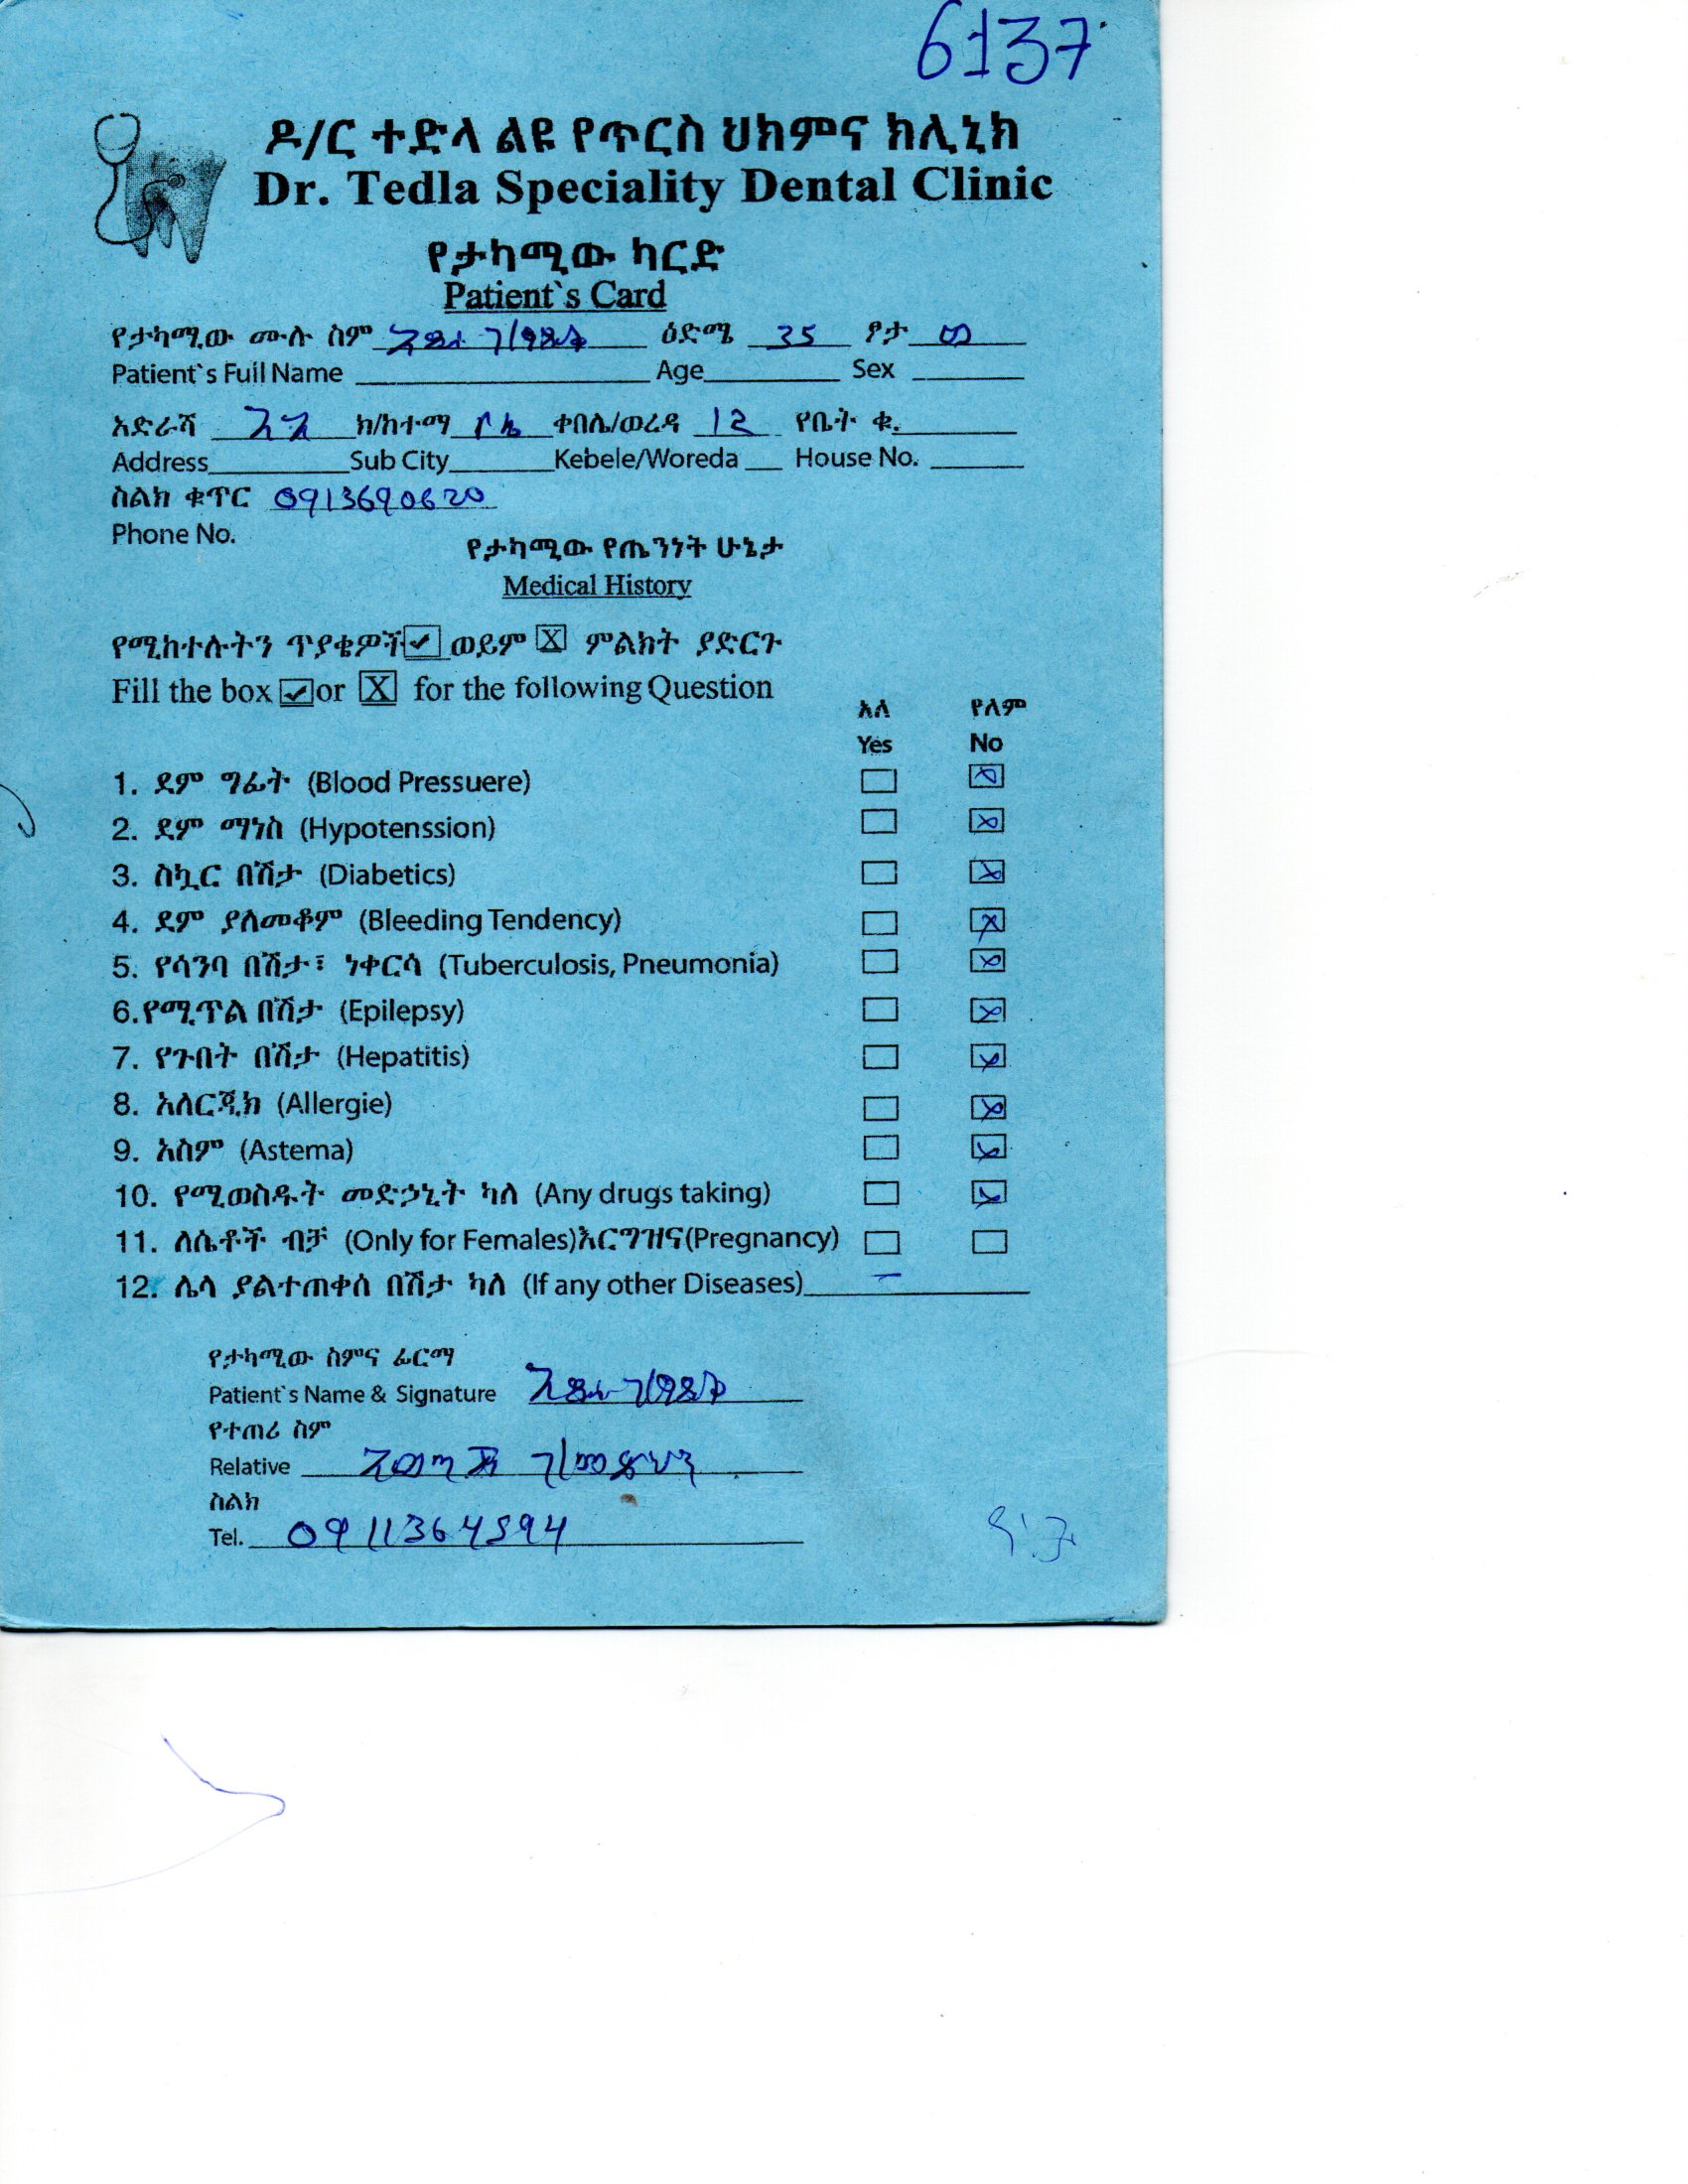 6137
ዶ/ር ተድላ ልዩ የጥርስ ህክምና ክሊኒክ
Dr. Tedla Speciality Dental Clinic
የታካሚው ካርድ
Patient`s Card
የታካሚው ሙሉ ስም ዕድሜ 35 ፆታ
Patient`s Full Name Age Sex
አድራሻ አአ ክ/ከተማ ቦሌ ቀበሌ/ወረዳ 12 የቤት ቁ.
Address Sub City Kebele/Woreda House No.
ስልክ ቁጥር 0913690620
Phone No.
የታካሚው የጤንነት ሁኔታ
Medical History
የሚከተሉትን ጥያቄዎች ወይም X ምልክት ያድርጉ
Fill the box or X for the following Question
አለ የለም
Yes No
1. ደም ግፊት (Blood Pressuere)
2. ደም ማነስ (Hypotenssion)
3. ስኳር በሽታ (Diabetics)
4. ደም ያለመቆም (Bleeding Tendency)
5. የሳንባ በሽታ፣ ነቀርሳ (Tuberculosis, Pneumonia)
6.የሚጥል በሽታ (Epilepsy)
7. የጉበት በሽታ (Hepatitis)
8. አለርጂክ (Allergie)
9. አስም (Astema)
10. የሚወስዱት መድኃኒት ካለ (Any drugs taking)
11. ለሴቶች ብቻ (Only for Females)እርግዝና(Pregnancy)
12. ሌላ ያልተጠቀሰ በሽታ ካለ (If any other Diseases)
የታካሚው ስምና ፊርማ
Patient`s Name & Signature
የተጠሪ ስም
Relative
ስልክ
Tel. 0911364594